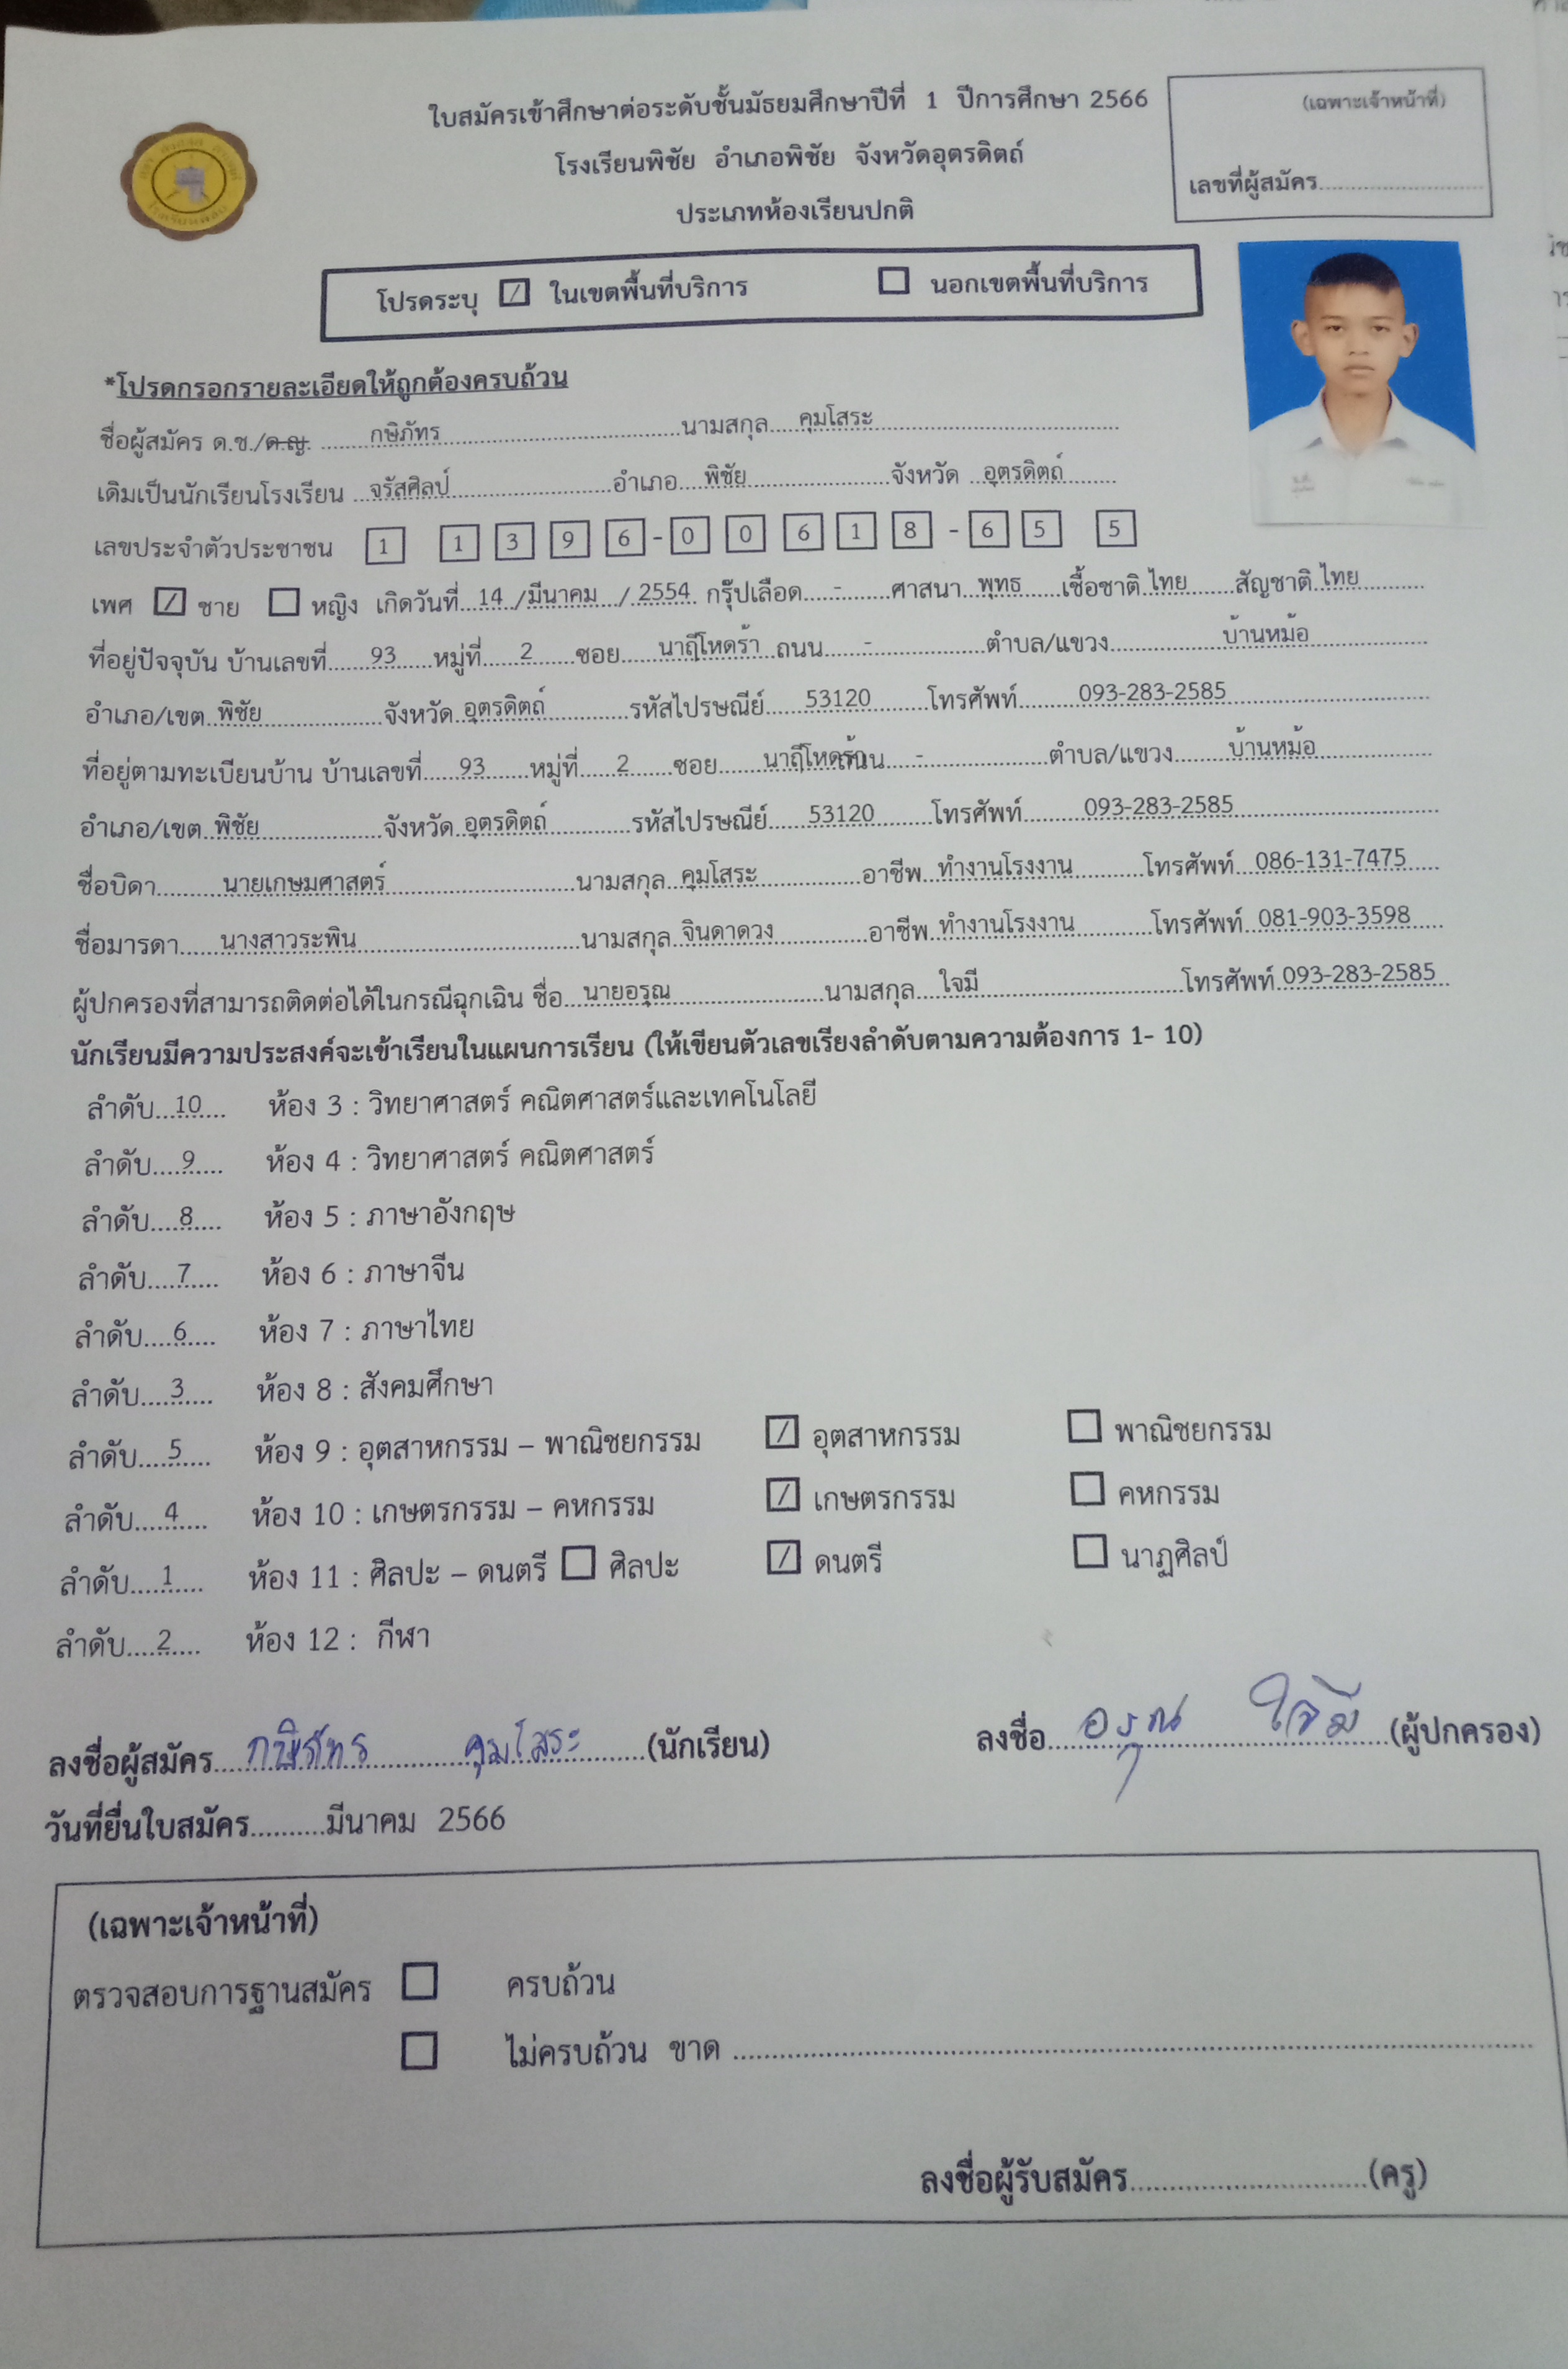 ใบสมัครเข้าศึกษาต่อระดับชั้นมัธยมศึกษาปีที่ 1 ปีการศึกษา 2566
(เฉพาะเจ้าหน้าที่)
โรงเรียนพิชัย อำเภอพิชัย จังหวัดอุตรดิตถ์
เลขที่ผู้สมัคร..............................
ประเภทห้องเรียนปกติ
โปรดระบุ ☑ ในเขตพื้นที่บริการ ☐ นอกเขตพื้นที่บริการ
*โปรดกรอกรายละเอียดให้ถูกต้องครบถ้วน
ชื่อผู้สมัคร ด.ช./ด.ญ. ........กษิภัทร........นามสกุล....คุมโสระ........
เดิมเป็นนักเรียนโรงเรียน ...จรัสศิลป์........อำเภอ....พิชัย........จังหวัด ...อุตรดิตถ์........
เลขประจำตัวประชาชน 1 1 3 9 6 - 0 0 6 1 8 - 6 5 5
เพศ ☑ ชาย ☐ หญิง เกิดวันที่...14.../มีนาคม.../...2554...กรุ๊ปเลือด.....-.....ศาสนา...พุทธ.....เชื้อชาติ.ไทย.......สัญชาติ.ไทย........
ที่อยู่ปัจจุบัน บ้านเลขที่......93.....หมู่ที่......2......ซอย.....นาฤโหดร้า..ถนน......-........ตำบล/แขวง........บ้านหม้อ........
อำเภอ/เขต..พิชัย........จังหวัด..อุตรดิตถ์........รหัสไปรษณีย์......53120......โทรศัพท์........093-283-2585........
ที่อยู่ตามทะเบียนบ้าน บ้านเลขที่.....93......หมู่ที่.....2......ซอย......นาฤโหดร้า ถนน....-........ตำบล/แขวง.......บ้านหม้อ........
อำเภอ/เขต..พิชัย........จังหวัด..อุตรดิตถ์........รหัสไปรษณีย์......53120......โทรศัพท์........093-283-2585........
ชื่อบิดา........นายเกษมศาสตร์........นามสกุล..คุมโสระ........อาชีพ..ทำงานโรงงาน........โทรศัพท์...086-131-7475.....
ชื่อมารดา.....นางสาวระพิน........นามสกุล..จินดาดวง........อาชีพ..ทำงานโรงงาน........โทรศัพท์...081-903-3598.....
ผู้ปกครองที่สามารถติดต่อได้ในกรณีฉุกเฉิน ชื่อ...นายอรุณ........นามสกุล....ใจมี........โทรศัพท์.093-283-2585..
นักเรียนมีความประสงค์จะเข้าเรียนในแผนการเรียน (ให้เขียนตัวเลขเรียงลำดับตามความต้องการ 1- 10)
ลำดับ...10.... ห้อง 3 : วิทยาศาสตร์ คณิตศาสตร์และเทคโนโลยี
ลำดับ....9..... ห้อง 4 : วิทยาศาสตร์ คณิตศาสตร์
ลำดับ....8..... ห้อง 5 : ภาษาอังกฤษ
ลำดับ....7..... ห้อง 6 : ภาษาจีน
ลำดับ....6..... ห้อง 7 : ภาษาไทย
ลำดับ....3..... ห้อง 8 : สังคมศึกษา
ลำดับ....5..... ห้อง 9 : อุตสาหกรรม – พาณิชยกรรม ☑ อุตสาหกรรม ☐ พาณิชยกรรม
ลำดับ....4..... ห้อง 10 : เกษตรกรรม – คหกรรม ☑ เกษตรกรรม ☐ คหกรรม
ลำดับ....1..... ห้อง 11 : ศิลปะ – ดนตรี ☐ ศิลปะ ☑ ดนตรี ☐ นาฏศิลป์
ลำดับ....2..... ห้อง 12 : กีฬา
ลงชื่อผู้สมัคร....กษิภัทร คุมโสระ........(นักเรียน) ลงชื่อ....อรุณ ใจมี....(ผู้ปกครอง)
วันที่ยื่นใบสมัคร..........มีนาคม 2566
(เฉพาะเจ้าหน้าที่)
ตรวจสอบการฐานสมัคร ☐ ครบถ้วน
☐ ไม่ครบถ้วน ขาด ................................................................
ลงชื่อผู้รับสมัคร..............................(ครู)